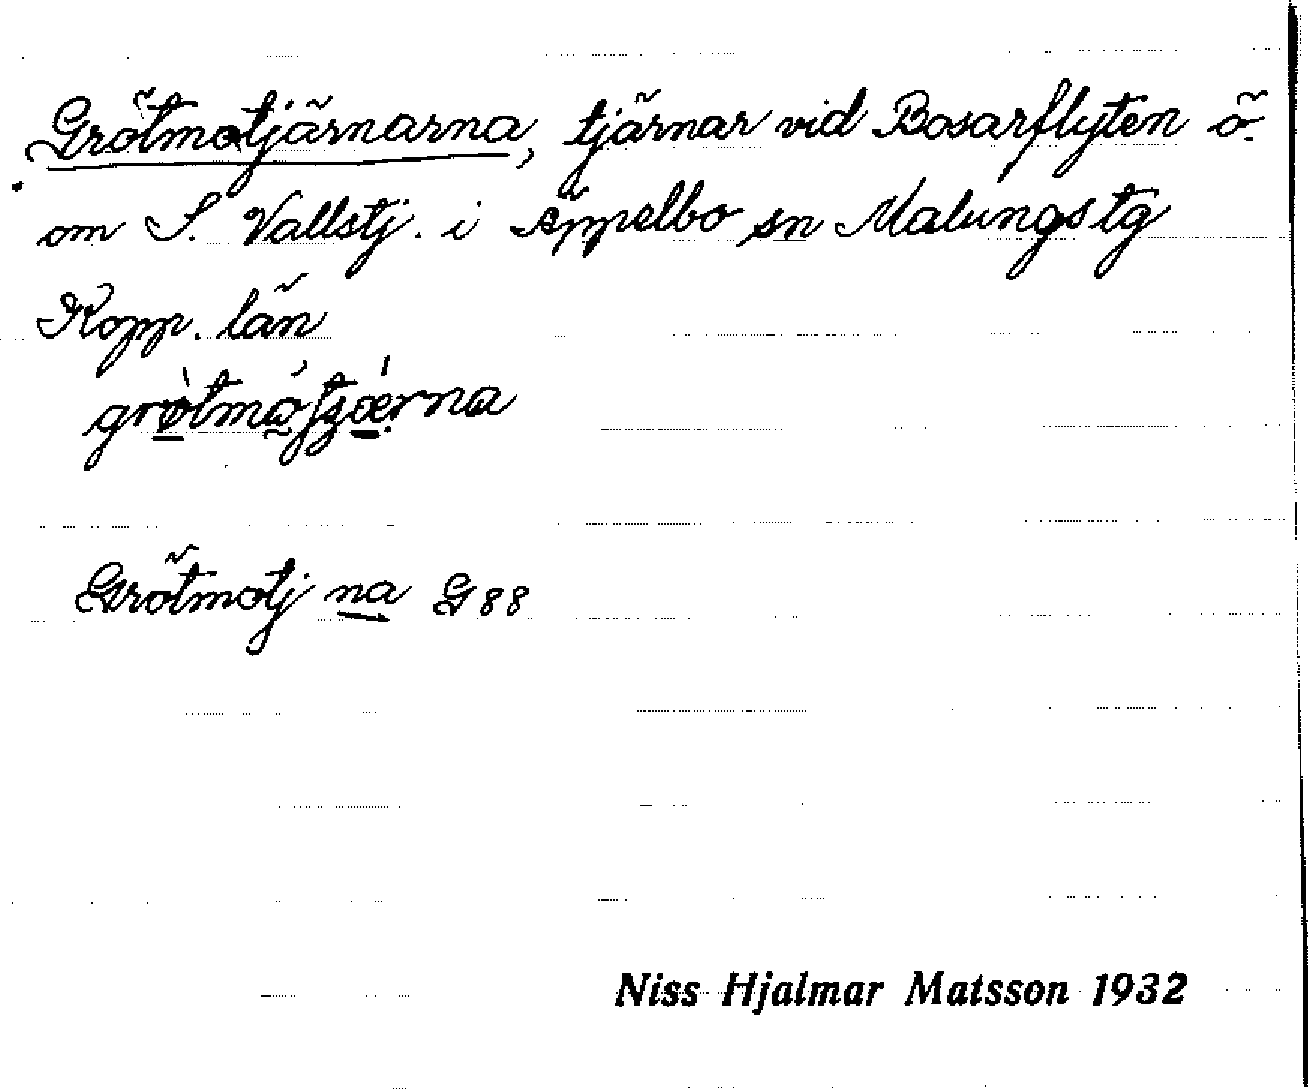 Grötmotjärnarna, tjärnar vid Bosarflyten ö.
om S. Vallstj. i Äppelbo sn Malungs tg
Kopp. län
Grötmotj na G 88
Niss Hjalmar Matsson 1932